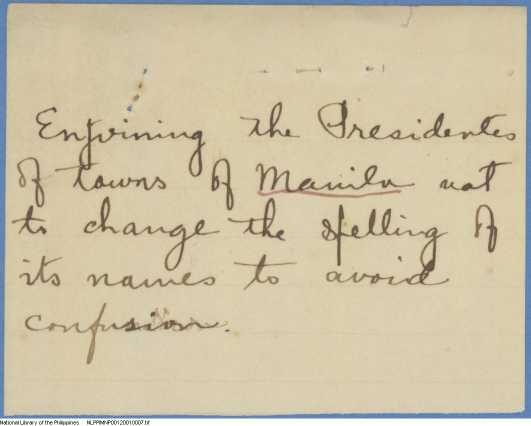 Enjoining the Presidentes
of towns of Manila not
to change the spelling of
its names to avoid
confusion.
National Library of the Philippines NLPPIMNP00120010007.tif